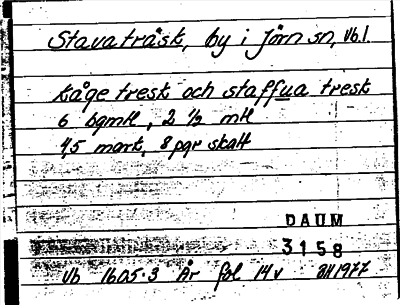 Stavaträsk, by i Jörn sn, Vb.l.
kåge tresk och staffua tresk
6 bgmtl, 2 ½ mtl
45 mark, 8 pgr skatt
DAUM
3158
Vb 1605:3 År fol 14v 1977